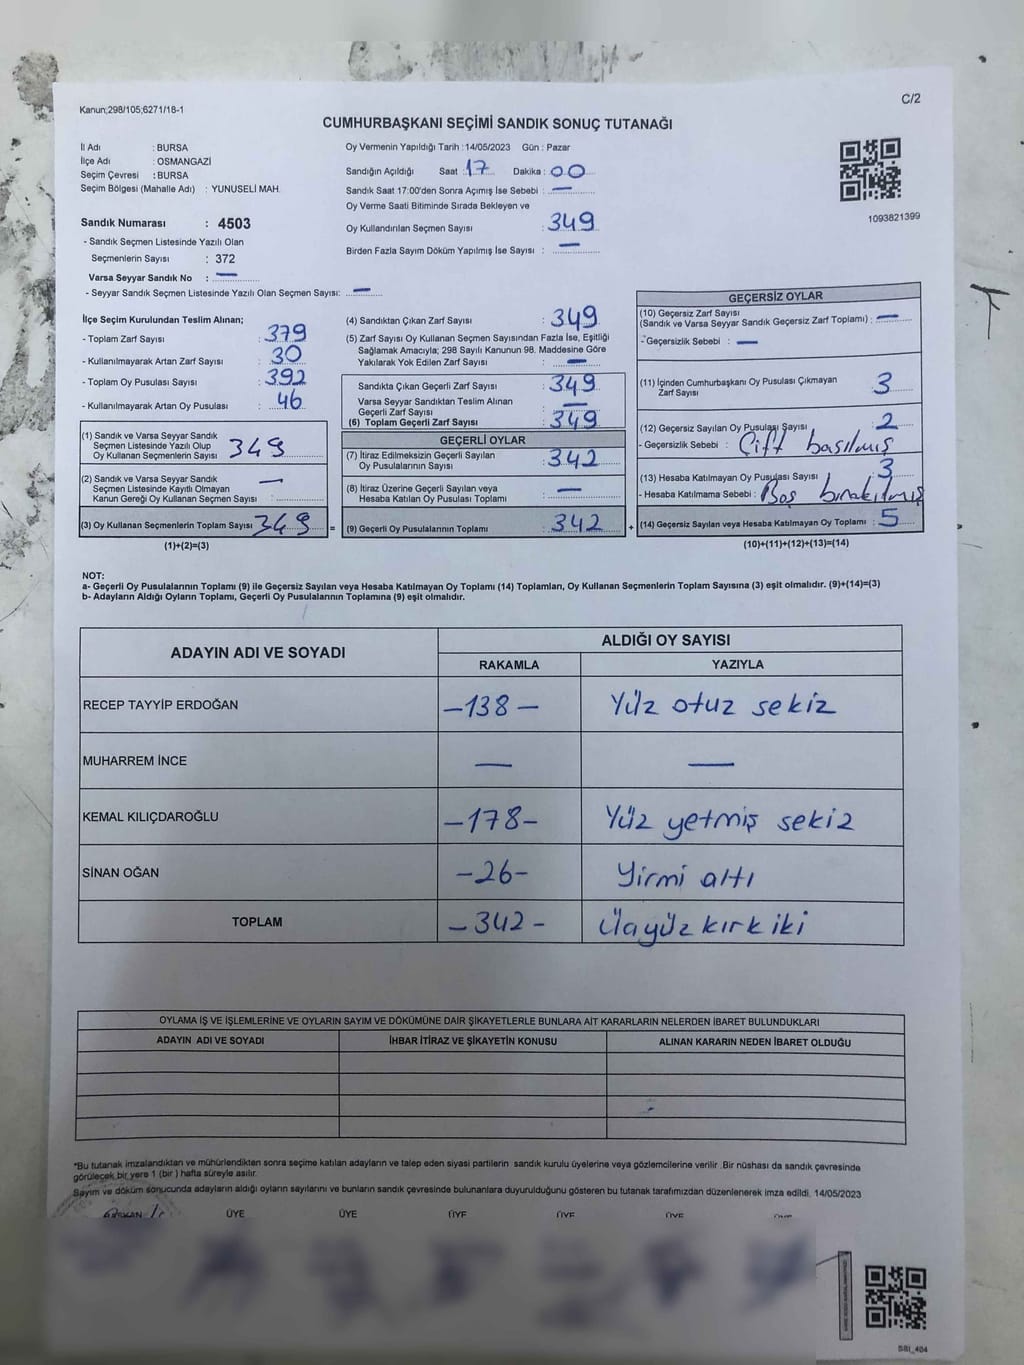 Kanun;298/105;6271/18-1
C/2
CUMHURBAŞKANI SEÇİMİ SANDIK SONUÇ TUTANAĞI
İl Adı : BURSA
İlçe Adı : OSMANGAZİ
Seçim Çevresi : BURSA
Seçim Bölgesi (Mahalle Adı) : YUNUSELİ MAH.
Sandık Numarası : 4503
- Sandık Seçmen Listesinde Yazılı Olan
Seçmenlerin Sayısı : 372
Varsa Seyyar Sandık No : —
- Seyyar Sandık Seçmen Listesinde Yazılı Olan Seçmen Sayısı: —
Oy Vermenin Yapıldığı Tarih : 14/05/2023 Gün : Pazar
Sandığın Açıldığı Saat : 17 Dakika : 00
Sandık Saat 17:00'den Sonra Açımış İse Sebebi : —
Oy Verme Saati Bitiminde Sırada Bekleyen ve
Oy Kullandırılan Seçmen Sayısı : 349
Birden Fazla Sayım Döküm Yapılmış İse Sayısı : —
1093821399
İlçe Seçim Kurulundan Teslim Alınan;
- Toplam Zarf Sayısı : 379
- Kullanılmayarak Artan Zarf Sayısı : 30
- Toplam Oy Pusulası Sayısı : 392
- Kullanılmayarak Artan Oy Pusulası : 46
(1) Sandık ve Varsa Seyyar Sandık
Seçmen Listesinde Yazılı Olup
Oy Kullanan Seçmenlerin Sayısı : 349
(2) Sandık ve Varsa Seyyar Sandık
Seçmen Listesinde Kayıtlı Olmayan
Kanun Gereği Oy Kullanan Seçmen Sayısı : —
(3) Oy Kullanan Seçmenlerin Toplam Sayısı : 349
(1)+(2)=(3)
(4) Sandıktan Çıkan Zarf Sayısı : 349
(5) Zarf Sayısı Oy Kullanan Seçmen Sayısından Fazla İse, Eşitliği
Sağlamak Amacıyla; 298 Sayılı Kanunun 98. Maddesine Göre
Yakılarak Yok Edilen Zarf Sayısı : —
Sandıkta Çıkan Geçerli Zarf Sayısı : 349
Varsa Seyyar Sandıktan Teslim Alınan
Geçerli Zarf Sayısı : —
(6) Toplam Geçerli Zarf Sayısı : 349
GEÇERLİ OYLAR
(7) İtiraz Edilmeksizin Geçerli Sayılan
Oy Pusulalarının Sayısı : 342
(8) İtiraz Üzerine Geçerli Sayılan veya
Hesaba Katılan Oy Pusulası Toplamı : —
= (9) Geçerli Oy Pusulalarının Toplamı : 342 +
GEÇERSİZ OYLAR
(10) Geçersiz Zarf Sayısı
(Sandık ve Varsa Seyyar Sandık Geçersiz Zarf Toplamı) : —
- Geçersizlik Sebebi : —
(11) İçinden Cumhurbaşkanı Oy Pusulası Çıkmayan
Zarf Sayısı : 3
(12) Geçersiz Sayılan Oy Pusulası Sayısı : 2
- Geçersizlik Sebebi : Çift basılmış
(13) Hesaba Katılmayan Oy Pusulası Sayısı : 3
- Hesaba Katılmama Sebebi : Boş bırakılmış
(14) Geçersiz Sayılan veya Hesaba Katılmayan Oy Toplamı : 5
(10)+(11)+(12)+(13)=(14)
NOT:
a- Geçerli Oy Pusulalarının Toplamı (9) ile Geçersiz Sayılan veya Hesaba Katılmayan Oy Toplamı (14) Toplamları, Oy Kullanan Seçmenlerin Toplam Sayısına (3) eşit olmalıdır. (9)+(14)=(3)
b- Adayların Aldığı Oyların Toplamı, Geçerli Oy Pusulalarının Toplamına (9) eşit olmalıdır.
ADAYIN ADI VE SOYADI ALDIĞI OY SAYISI
RAKAMLA YAZIYLA
RECEP TAYYİP ERDOĞAN –138– Yüz otuz sekiz
MUHARREM İNCE — —
KEMAL KILIÇDAROĞLU –178– Yüz yetmiş sekiz
SİNAN OĞAN –26– Yirmi altı
TOPLAM –342– Üçyüz kırk iki
OYLAMA İŞ VE İŞLEMLERİNE VE OYLARIN SAYIM VE DÖKÜMÜNE DAİR ŞİKAYETLERLE BUNLARA AİT KARARLARIN NELERDEN İBARET BULUNDUKLARI
ADAYIN ADI VE SOYADI İHBAR İTİRAZ VE ŞİKAYETİN KONUSU ALINAN KARARIN NEDEN İBARET OLDUĞU
*Bu tutanak imzalandıktan ve mühürlendikten sonra seçime katılan adayların ve talep eden siyasi partilerin sandık kurulu üyelerine veya gözlemcilerine verilir .Bir nüshası da sandık çevresinde
görülecek bir yere 1 (bir ) hafta süreyle asılır.
Sayım ve döküm sonucunda adayların aldığı oyların sayılarını ve bunların sandık çevresinde bulunanlara duyurulduğunu gösteren bu tutanak tarafımızdan düzenlenerek imza edildi. 14/05/2023
ÜYE ÜYE ÜYE ÜYE ÜYE
SBI_404